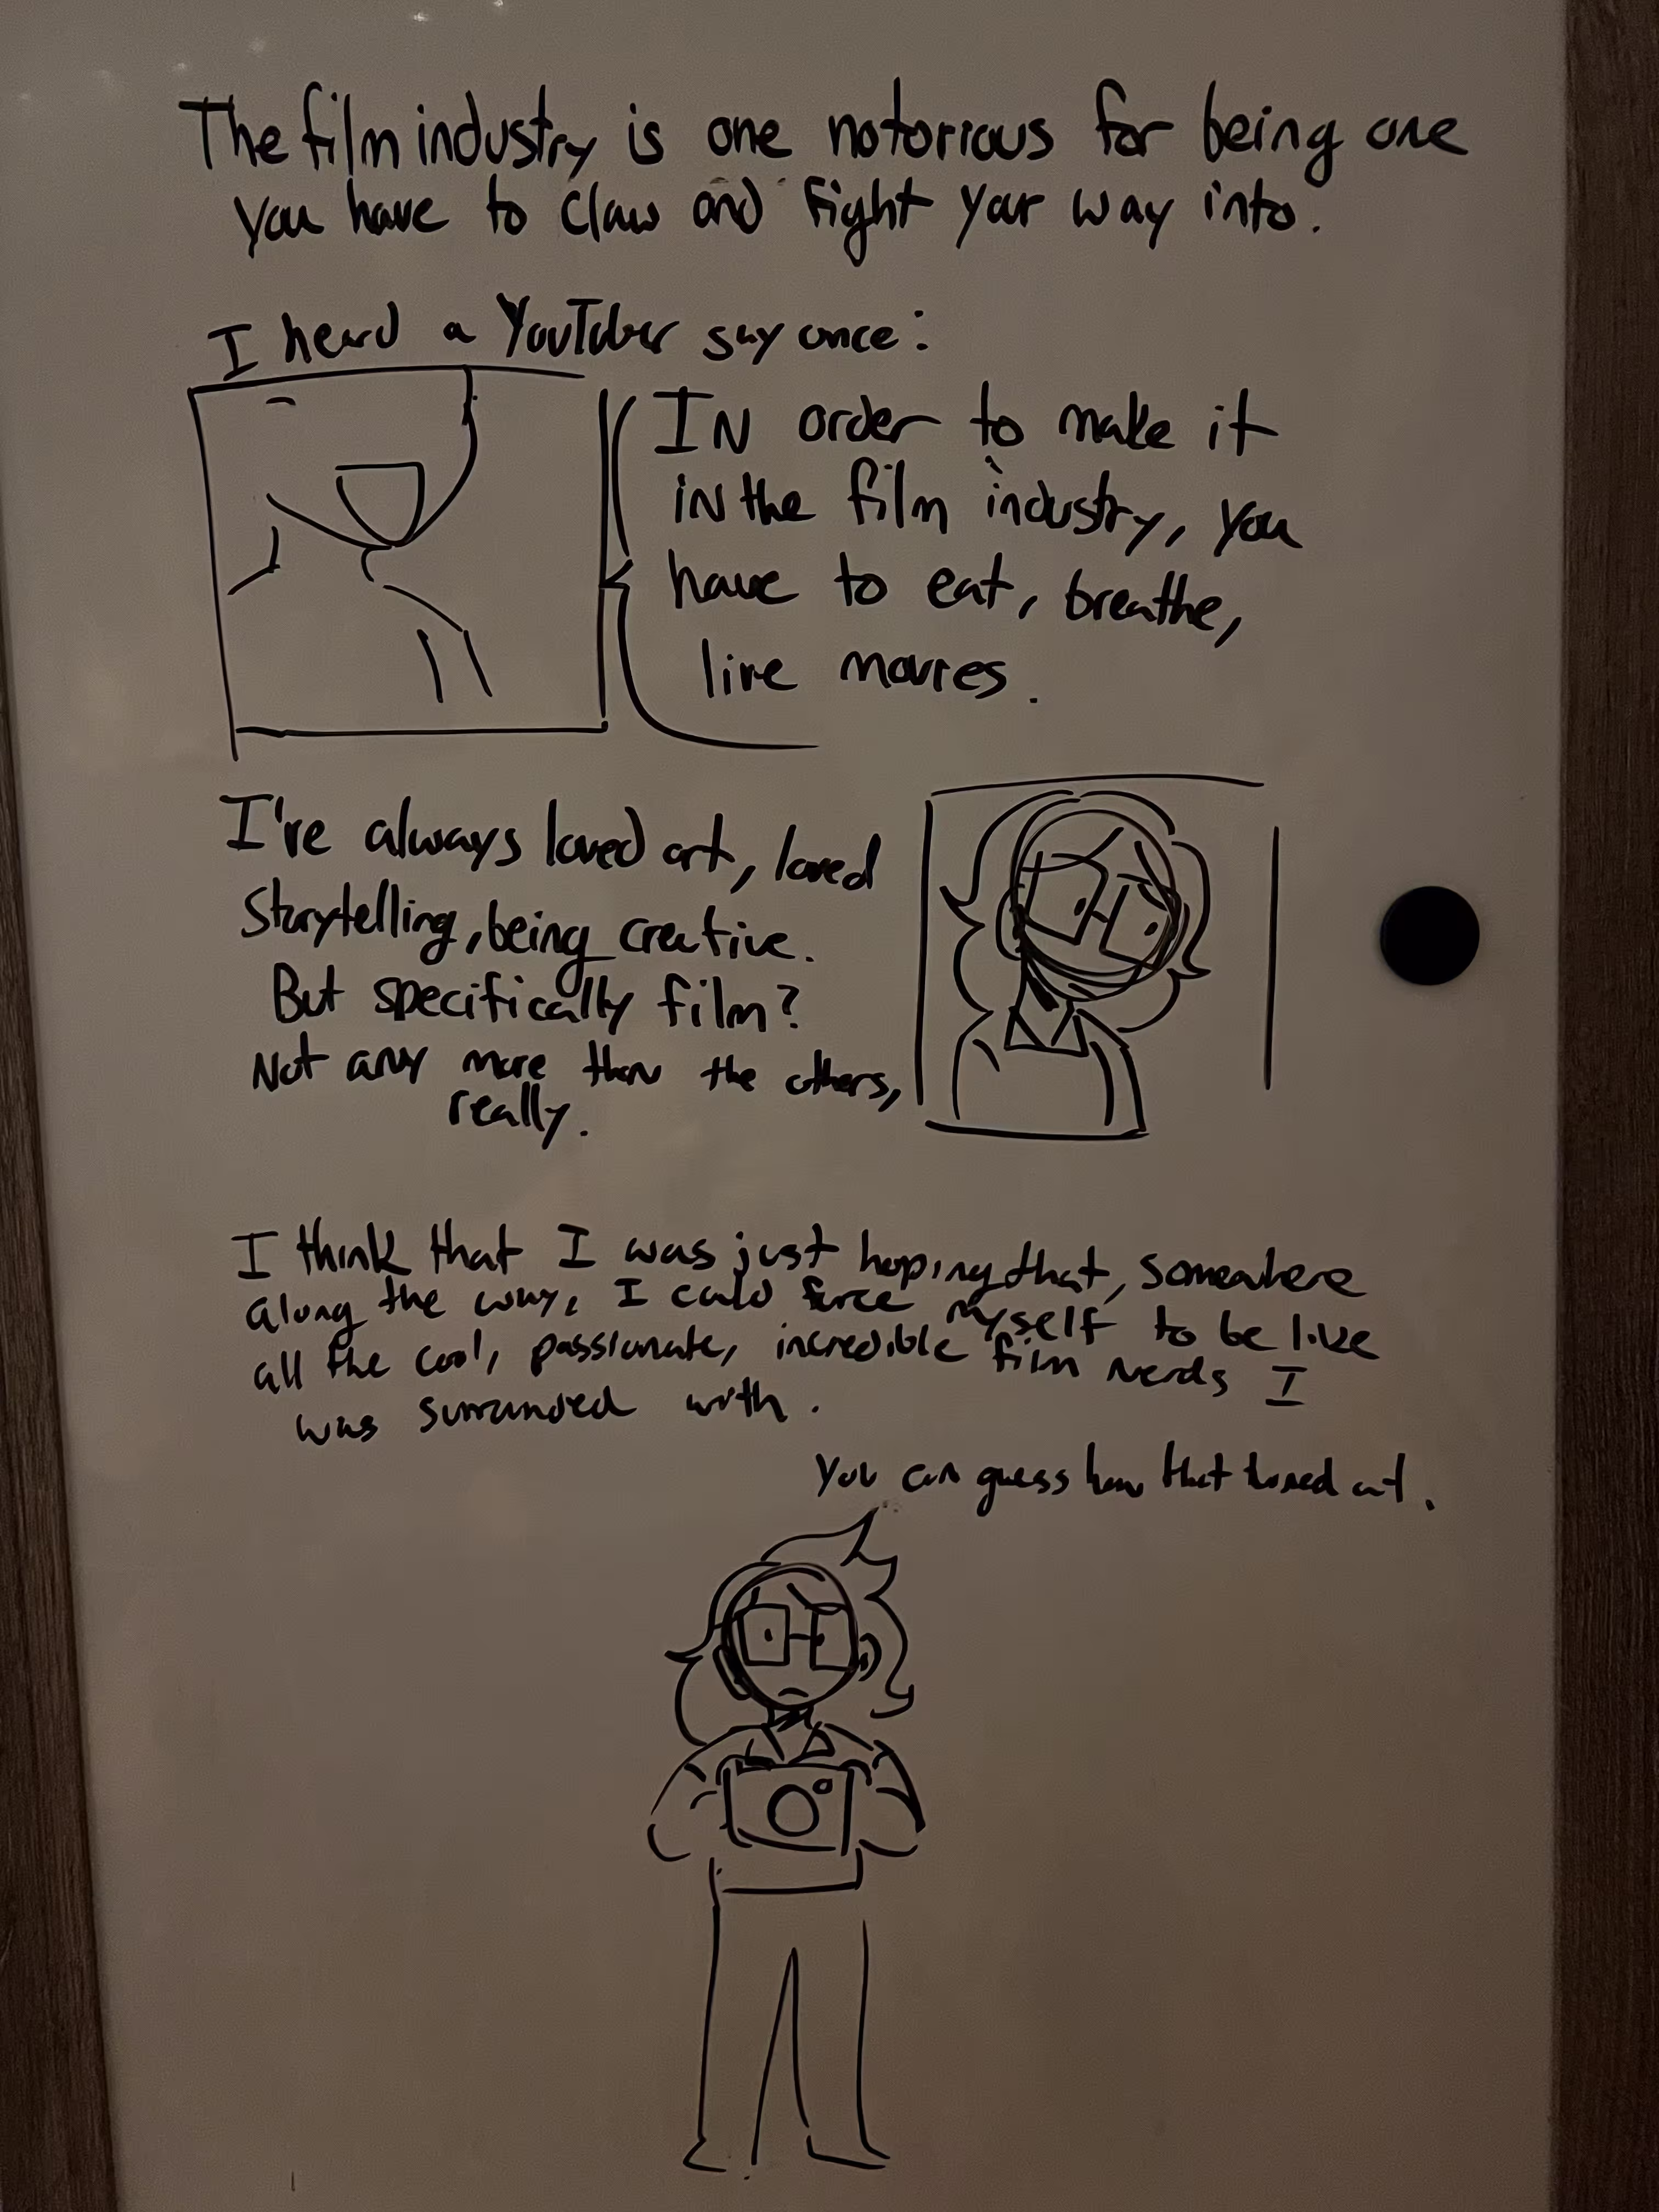 The film industry is one notorious for being one
you have to claw and fight your way into.
I heard a YouTuber say once:
IN order to make it
in the film industry, you
have to eat, breathe,
live movies.
I've always loved art, loved
Storytelling, being creative.
But specifically film?
Not any more than the others,
really.
I think that I was just hoping that, somewhere
along the way, I could force myself to be like
all the cool, passionate, incredible film nerds I
was surrounded with.
You can guess how that turned out.